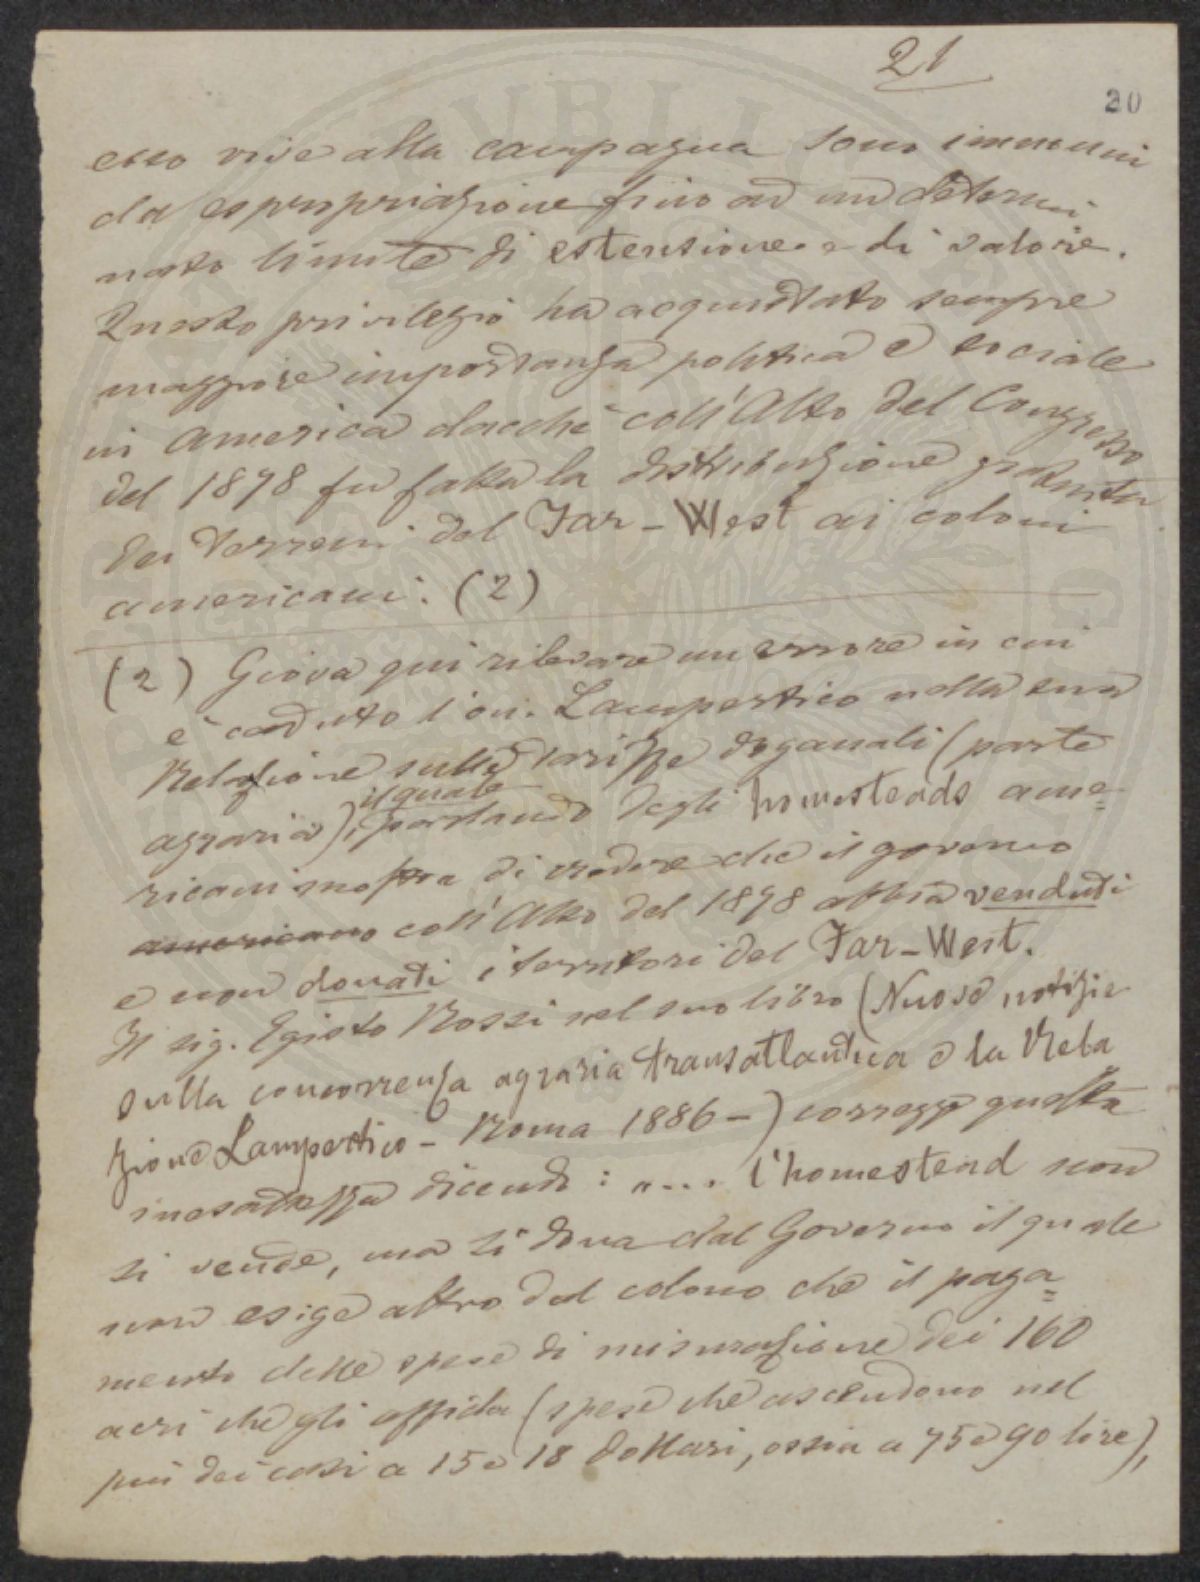 21
20
esso vive alla campagna sono immuni
da espropriazione fino ad un determi
nato limite di estensione e di valore.
Questo privilegio ha acquistato sempre
maggiore importanza politica e sociale
in America dacchè coll'Atto del Congresso
del 1878 fu fatta la distribuzione gratuita
dei terreni del Far-West ai coloni
americani. (2)
(2) Giova qui rilevare un errore in cui
è caduto l'on. Lampertico nella sua
Relazione sulle tariffe doganali (parte
il quale
agraria), parlando degli homesteads ame=
ricani mostra di credere che il governo
americano coll'Atto del 1878 abbia venduti
e non donati i territori del Far-West.
Il sig. Egisto Rossi nel suo libro (Nuove notizie
sulla concorrenza agraria transatlantica e la Rela
zione Lampertico - Roma 1886-) corregge questa
inesattezza dicendo: "... l'homestead non
si vende, ma si dona dal Governo il quale
non esige altro dal colono che il paga=
mento delle spese di misurazione dei 160
acri che gli affida (spese che ascendono nel
più dei casi a 15 e 18 dollari, ossia a 75 e 90 lire),